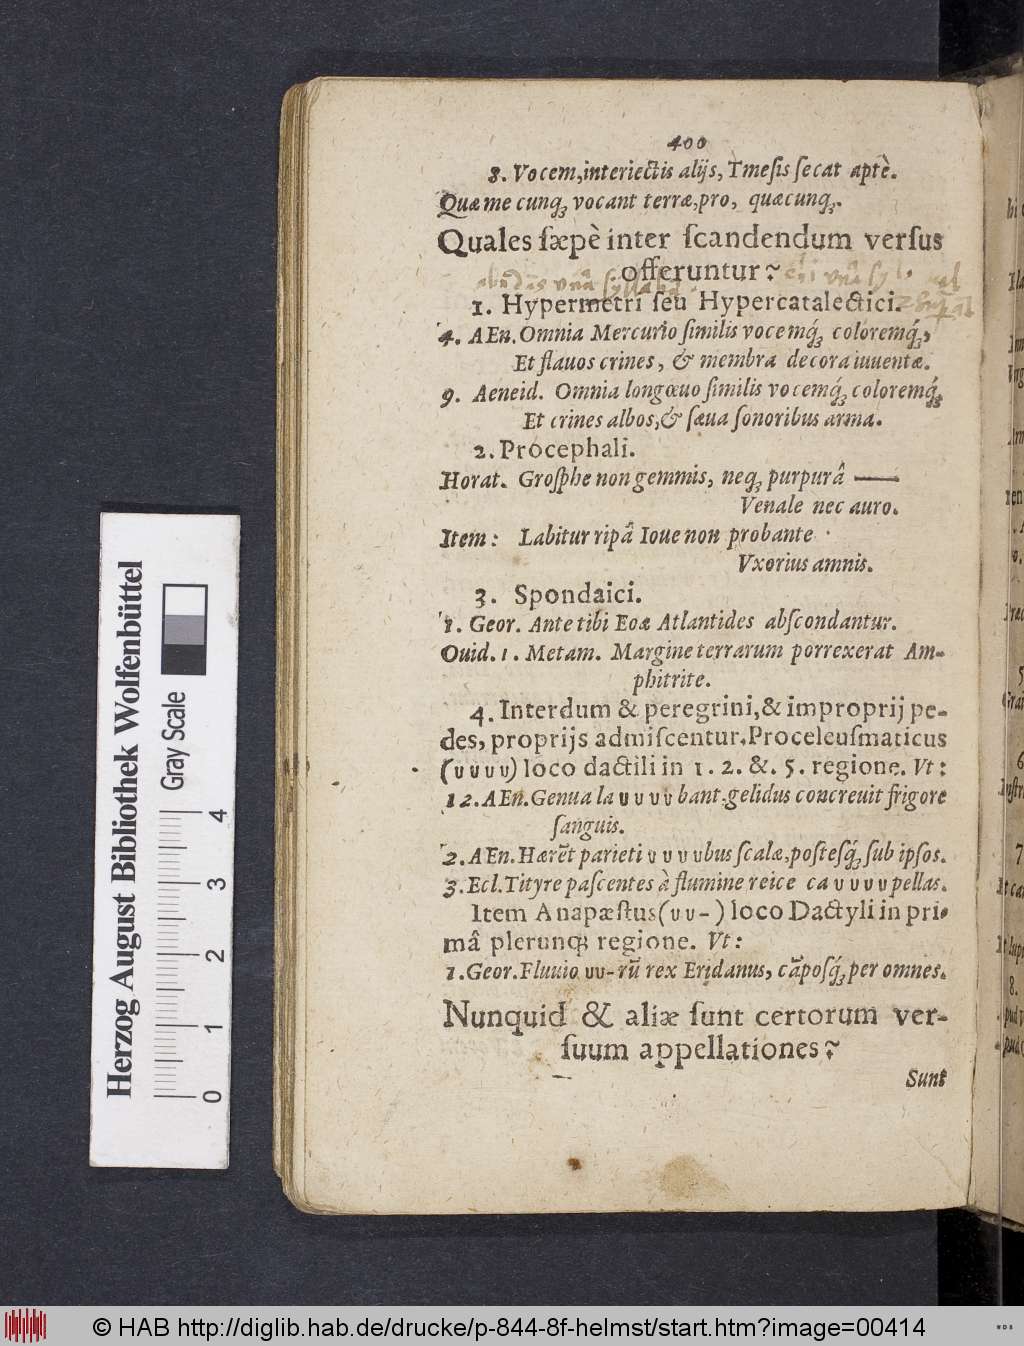 400
8. Vocem, interiectis alijs, Tmeſis ſecat aptè.
Quæ me cunq́ꝫ vocant terræ, pro, quæcunqꝫ.
Quales ſæpè inter ſcandendum verſus
offeruntur?
vnã ſyllabã
vnã ſyl.
1. Hypermetri ſeu Hypercatalectici.
4. AEn. Omnia Mercurio ſimilis vocemq́ꝫ coloremq́ꝫ,
Et flauos crines, & membra decora iuuentæ.
9. Aeneid. Omnia longœuo ſimilis vocemq́ꝫ coloremq́ꝫ
Et crines albos, & ſæua ſonoribus arma.
2. Procephali.
Horat. Groſphe non gemmis, neqꝫ purpurâ ——
Venale nec auro.
Item: Labitur ripâ Ioue non probante
Vxorius amnis.
3. Spondaici.
1. Geor. Ante tibi Eoæ Atlantides abſcondantur.
Ouid. 1. Metam. Margine terrarum porrexerat Am-
phitrite.
4. Interdum & peregrini, & improprij pe-
des, proprijs admiſcentur. Proceleuſmaticus
(υ υ υ υ) loco dactili in 1. 2. &. 5. regione. Vt:
12. AEn. Genua la υ υ υ υ bant. gelidus concreuit frigore
ſanguis.
2. AEn. Hærẽt parieti υ υ υ υ bus ſcalæ, poſteſq́ꝫ ſub ipſos.
3. Ecl. Tityre paſcentes à flumine reice ca υ υ υ υ pellas.
Item Anapæſtus (υ υ -) loco Dactyli in pri-
mâ plerunqꝫ regione. Vt:
1. Geor. Fluuio υυ- rũ rex Eridanus, cãpoſq́ꝫ per omnes.
Nunquid & aliæ ſunt certorum ver-
ſuum appellationes?
Sunt
Herzog August Bibliothek Wolfenbüttel
Gray Scale
0 1 2 3 4
© HAB http://diglib.hab.de/drucke/p-844-8f-helmst/start.htm?image=00414